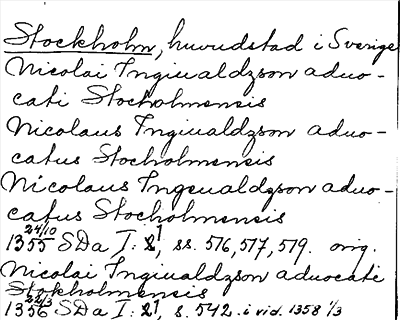 Stockholm, huvudstad i Sverige
Nicolai Ingiualdzson aduo-
cati Stocholmensis
Nicolaus Ingiualdzson aduo-
catus Stocholmensis
Nicolaus Ingeualdzson aduo-
catus Stocholmensis
24/10
1355 SDa I: 1, ss. 576, 577, 579. orig.
Nicolai Ingiualdzson aduocati
Stokholmensis
22/3
1356 SDa I: 1, s. 542. i vid. 1358 1/3